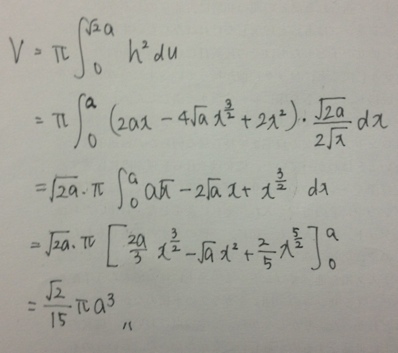 V = π∫₀^{√2a} h² du
= π∫₀^{a} (2ax - 4√a x^{3/2} + 2x²)·√(2a)/(2√x) dx
= √(2a)·π ∫₀^{a} a√x - 2√a x + x^{3/2} dx
= √(2a)·π [ 2a/3 x^{3/2} - √a x² + 2/5 x^{5/2} ]₀^{a}
= √2/15 πa³ 〃